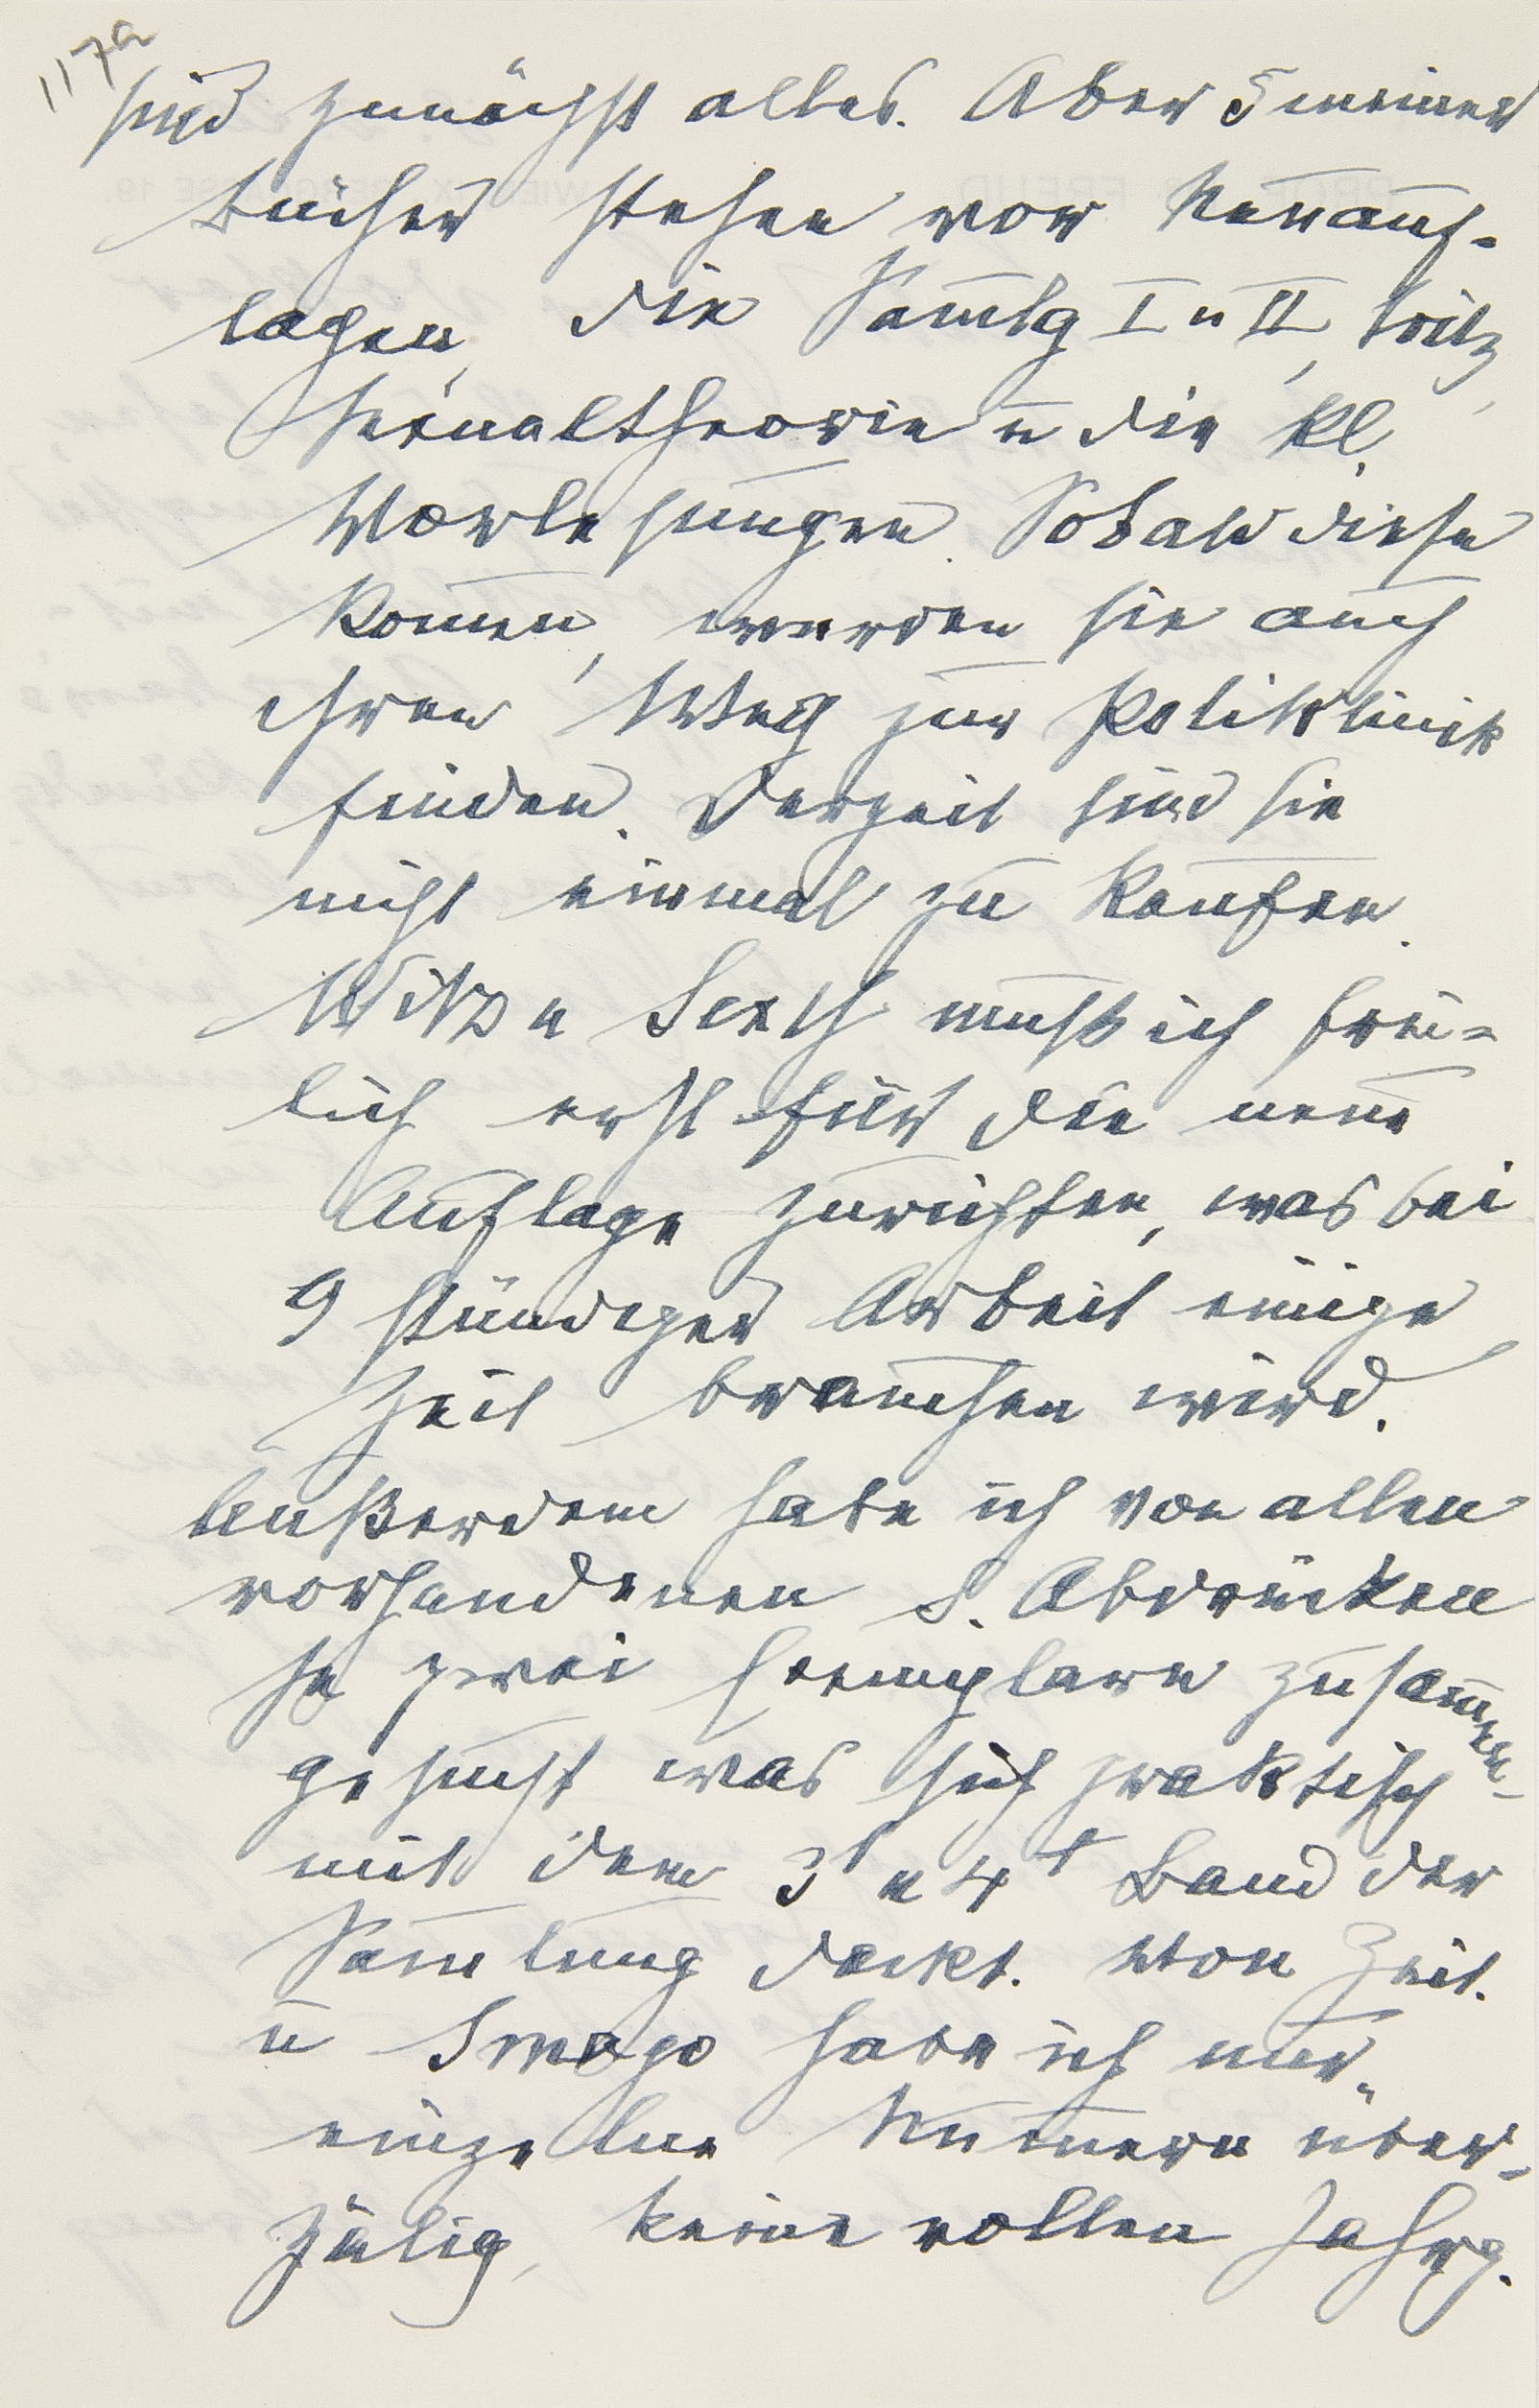 117a
sind zunächst alles. Aber 5 meiner
Bücher stehen vor Neuauf-
lagen, die Samlg I u II, Witz,
Sexualtheorie u die Kl.
Vorlesungen. Sobald diese
kommen, werden sie auch
ihren Weg zur Poliklinik
finden. Derzeit sind sie
nicht einmal zu kaufen.
Witz u Sexth muß ich frei-
lich erst für die neue
Auflage zurichten, was bei
9 stündiger Arbeit einige
Zeit brauchen wird.
Außerdem habe ich von allen
vorhandenen S. Abdrücken
je zwei Exemplare zusammen-
gesucht was sich praktisch
mit dem 3t u 4t Band der
Sammlung deckt. Von Zeit.
u Imago habe ich nur
einzelne Nummern über-
zälig, keine vollen Jahrg.